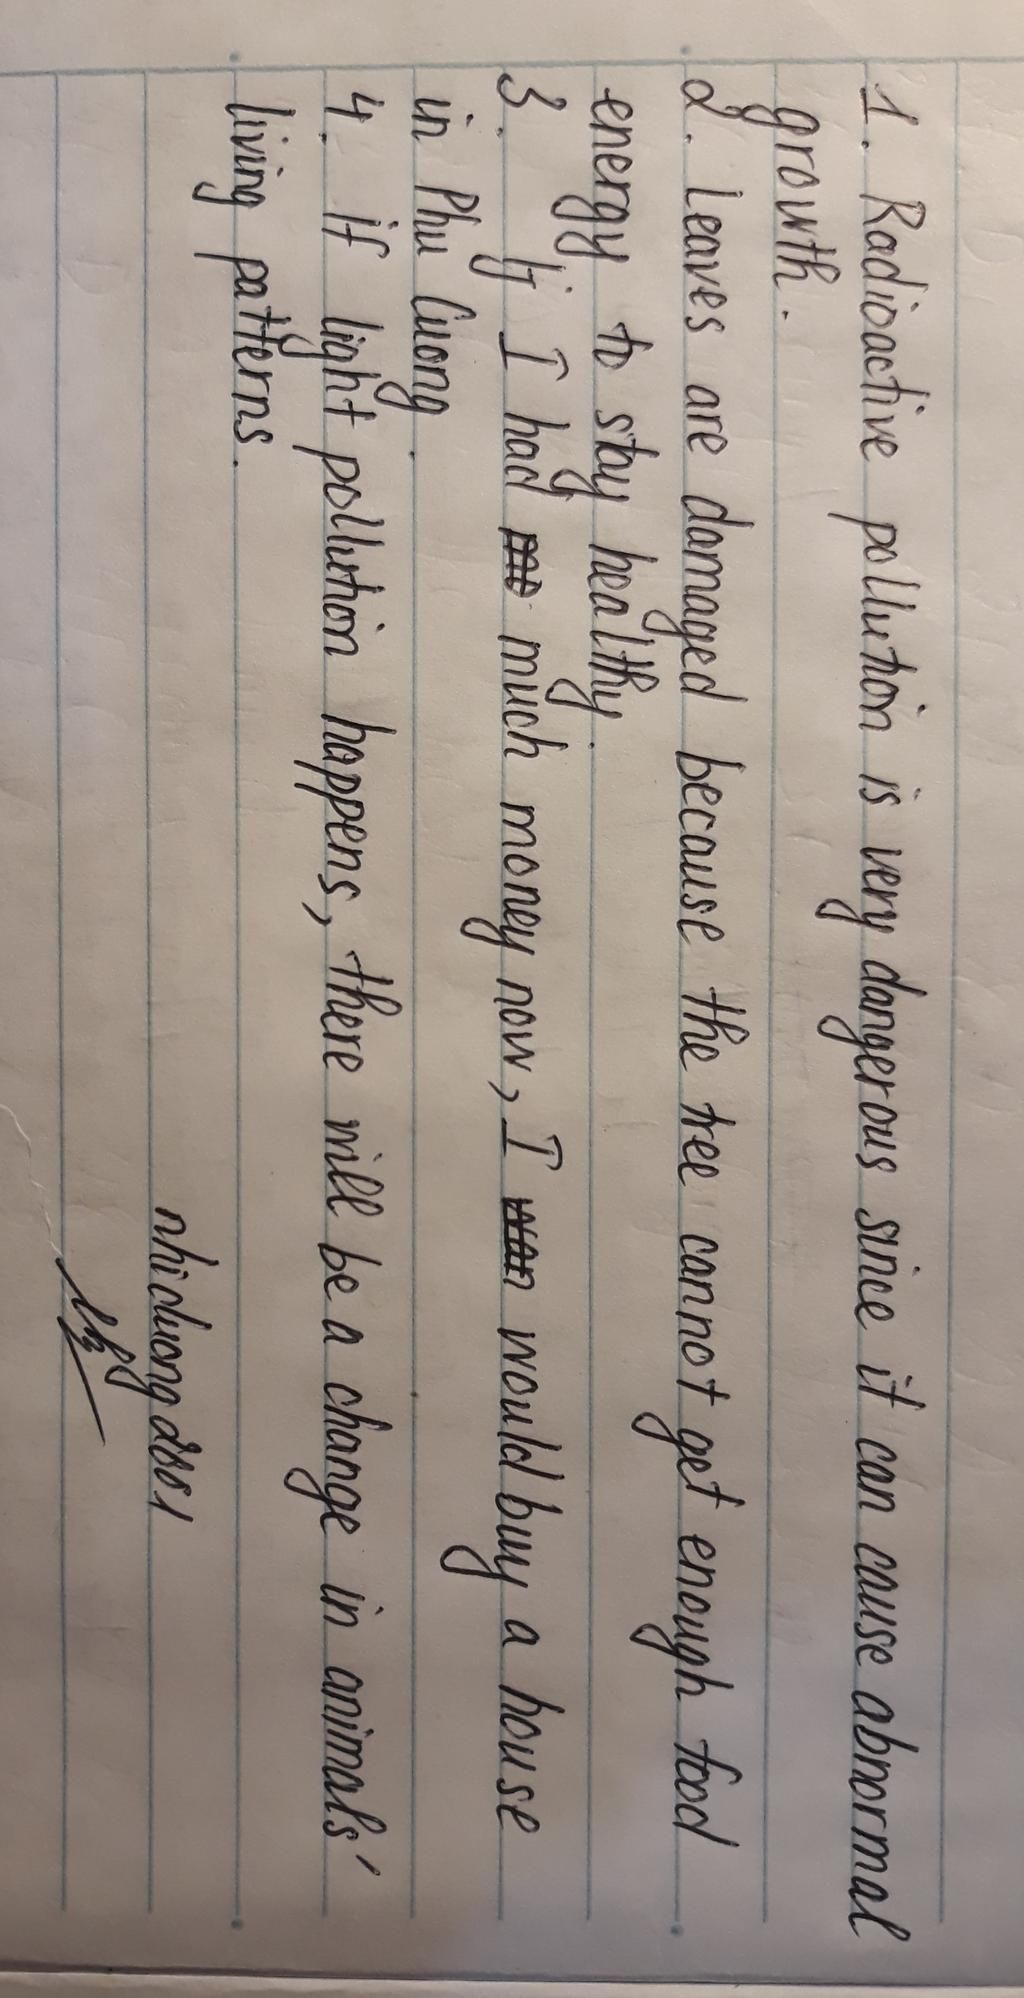 1. Radioactive pollution is very dangerous since it can cause abnormal
growth.
2. Leaves are damaged because the tree cannot get enough food
energy to stay healthy.
3. If I had much money now, I would buy a house
in Phu Cuong.
4. if light pollution happens, there will be a change in animals'
living patterns.
nhiduong2801